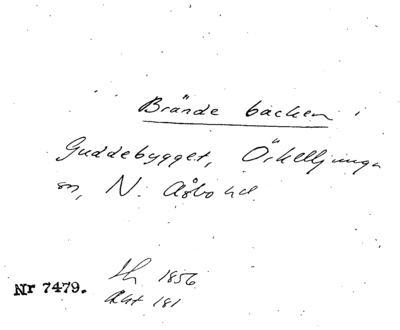 Brände backen i
Guddebygget, Örkelljunga
sn, N. Åsbo hd.
1856
Nr 7479.
Akt 181